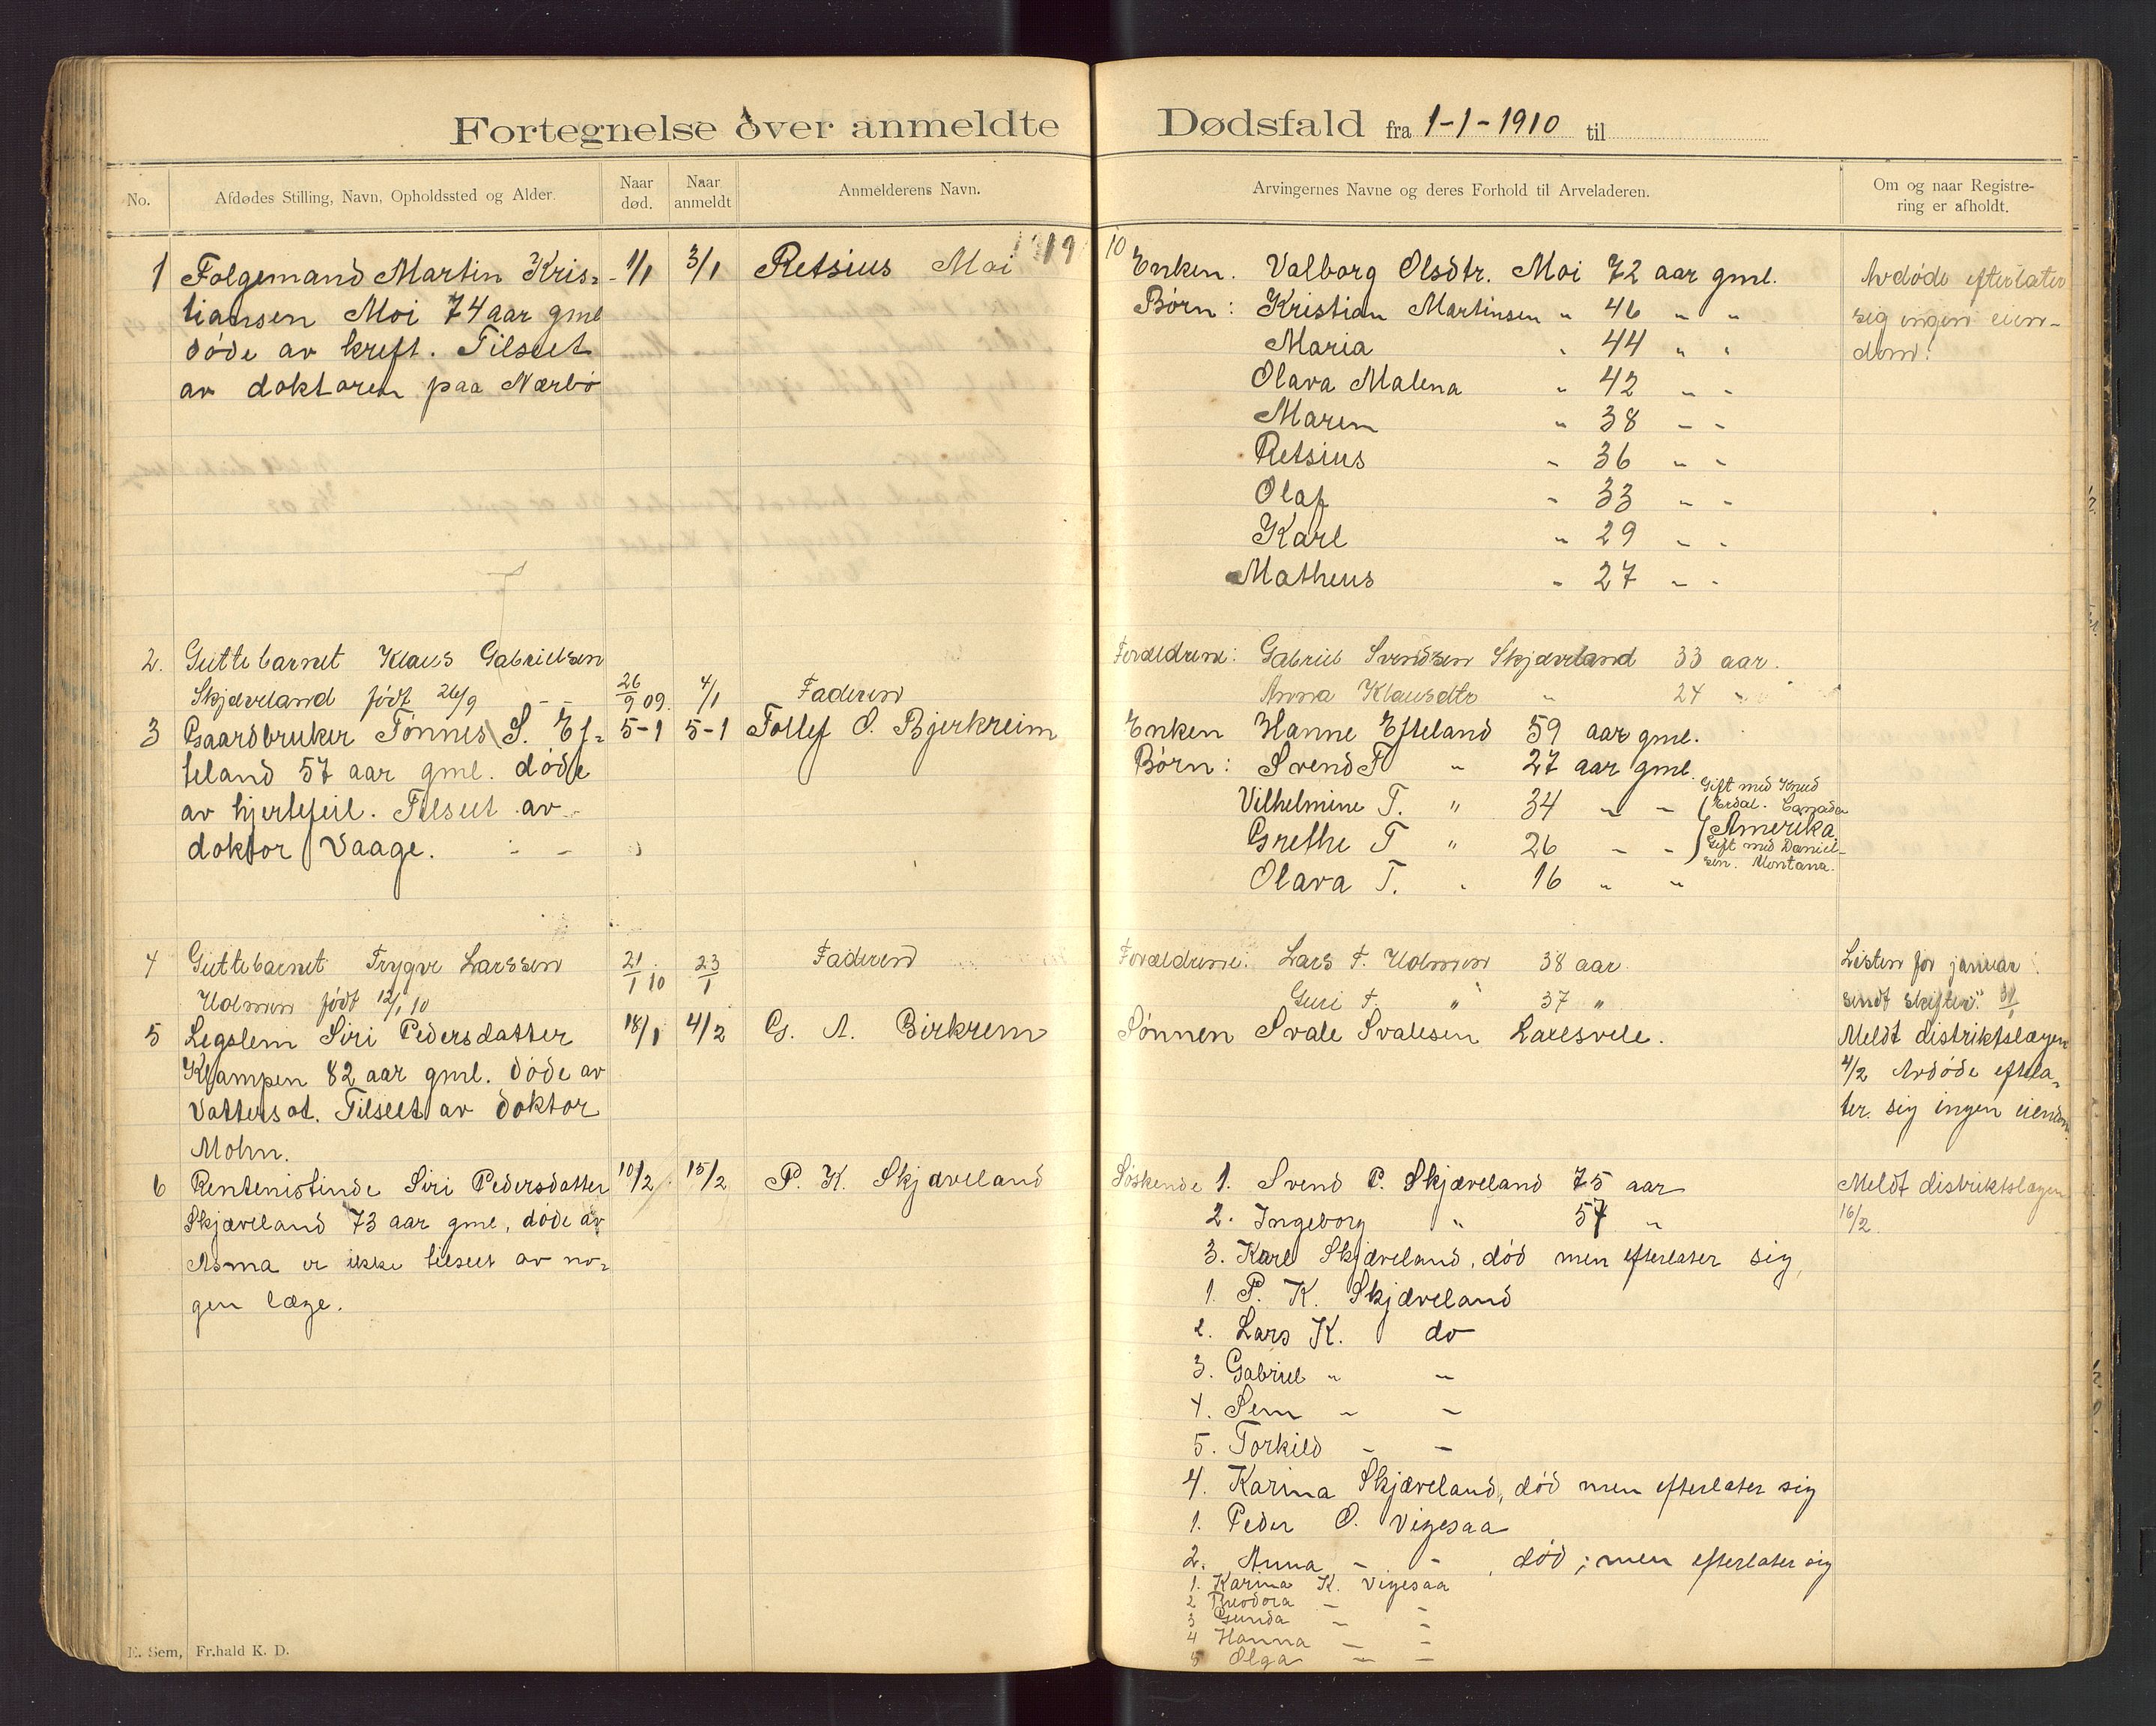 Fortegnelse over anmeldte Dødsfald fra 1-1-1910 til
No.
Afdødes Stilling, Navn, Opholdssted og Alder.
Naar død.
Naar anmeldt
Anmelderens Navn.
Arvingernes Navne og deres Forhold til Arveladeren.
Om og naar Registrering er afholdt.
1910
1 Folgemand Martin Kris- 1/1 3/1 Retsius Moi
tiansen Moi 74 aar gml
døde av kreft. Tilseet
av doktoren paa Nærbø
Enken. Valborg Olsdtr. Moi 72 aar gml.
Børn: Kristian Martinsen " 46 " "
Maria " 44 " "
Olava Malena " 42 " "
Maren " 38 " "
Retsius " 36 " "
Olaf " 33 " "
Karl " 29 " "
Matheus " 27 " "
Avdøde efterlater
sig ingen eien-
dom!
2. Guttebarnet Klaus Gabrielsen
Skjæveland født 26/9 26/9 09. 4/1 Faderen
Forældrene: Gabriel Svendsen Skjæveland 33 aar.
Anna Klausdtr " 24 "
3 Gaardbruker Tønnes S. Ef- 5-1 5-1 Tollef O. Bjerkreim
teland 57 aar gml. døde
av hjertefeil. Tilseet av
doktor Vaage.
Enken Hanne Efteland 59 aar gml.
Børn: Svend T " 27 aar gml.
Vilhelmine T. " 34 " " Gift med Knud
Erdal. Canada
Grethe T " 26 " " Amerika
Gift med Daniel-
sen. Montana.
Olava T. " 16 " "
4 Guttebarnet Trygve Larssen 21/1 10 23/1 Faderen
Holmen født 12/1 10
Forældrene: Lars T. Holmen 38 aar.
Guri T. " 37 "
Listen for januar
sendt skifter. 31/1
5 Legslem Siri Pedersdatter 18/1 4/2 G. A. Birkrem
Klampen 82 aar gml. døde av
Vattersot. Tilseet av doktor
Mohn.
Sønnen Svale Svalesen Laelsvele.
Meldt distriktslægen
4/2 Avdøde efterla-
ter sig ingen eiendom.
6 Rentenistinde Siri Pedersdatter 10/2 15/2 P. K. Skjæveland
Skjæveland 73 aar gml, døde av
Asma er ikke tilseet av no-
gen læge.
Søskende 1. Svend P. Skjæveland 75 aar
2. Ingeborg " 57 "
3. Karl Skjæveland, død men efterlater sig,
1. P. K. Skjæveland
2. Lars K. do
3. Gabriel " "
4. Sem " "
5. Torkild " "
4. Karina Skjæveland, død men efterlater sig
1. Peder O. Vigesaa
2. Anna " ", død; men efterlater sig
1. Karina K. Vigesaa
2 Theodora " "
3 Gunda " "
4 Hanna " "
5 Olga " "
Meldt distriktslægen
16/2.
E. Sem, Fr.hald K. D.